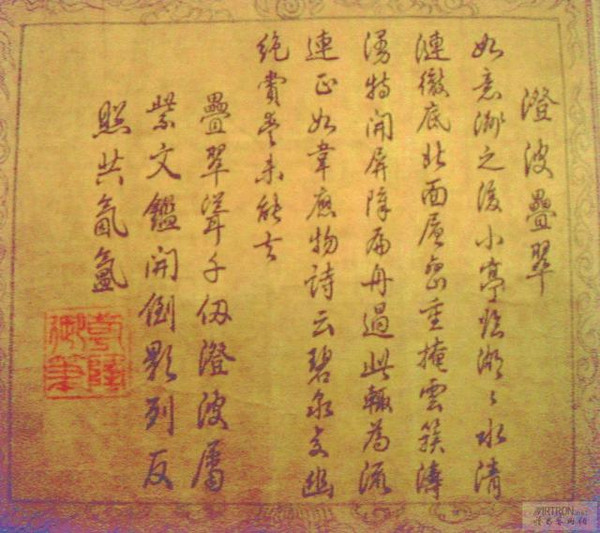 澄波疊翠
如意洲之後小亭臨湖〻水清
漣徹底北面層巒重掩雲簇濤
湧特開屏障扁舟過此輒為流
連正如韋應物詩云碧泉交幽
絕賞愛未能去
疊翠聳千仞澄波屬
紫文鑑開倒影列反
照共氤氳
乾隆
御筆
ARTRON.NET